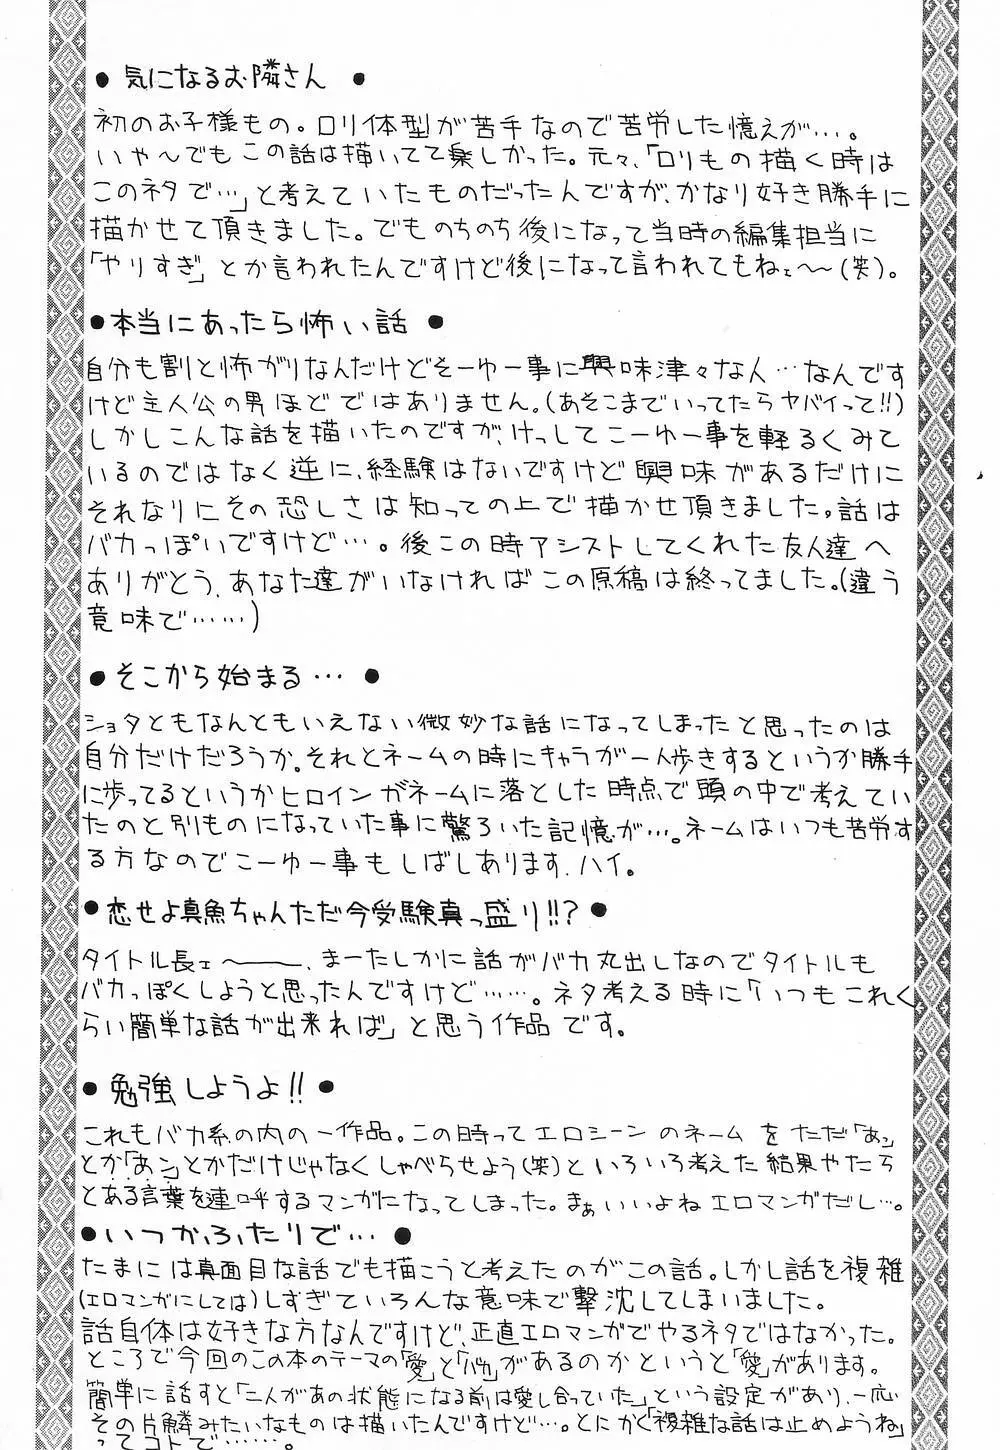 ● 気になるお隣さん ●
初のお子様もの。ロリ体型が苦手なので苦労した憶えが…。
いゃ〜でもこの話は描いてて楽しかった。元々、「ロリもの描く時は
このネタで…」と考えていたものだったんですが、かなり好き勝手に
描かせて頂きました。でものちのち後になって当時の編集担当に
「やりすぎ」とか言われたんですけど後になって言われてもねェ〜(笑)。
●本当にあったら怖い話 ●
自分も割と怖がりなんだけどそーゆー事に興味津々な人…なんです
けど主人公の男ほどではありません。(あそこまでいってたらヤバイって!!)
しかしこんな話を描いたのですが、けっしてこーゆー事を軽るくみて
いるのではなく逆に、経験はないですけど興味があるだけに
それなりにその恐しさは知っての上で描かせ頂きました。話は
バカっぽいですけど…。後この時アシストしてくれた友人達へ
ありがとう、あなた達がいなければこの原稿は終ってました。(違う
意味で……)
●そこから始まる… ●
ショタともなんともいえない微妙な話になってしまったと思ったのは
自分だけだろうか。それとネームの時にキャラが一人歩きするというか勝手
に歩ってるというかヒロインがネームに落とした時点で頭の中で考えてい
たのと別ものになっていた事に驚ろいた記憶が…。ネームはいつも苦労す
る方なのでこーゆー事もしばしあります、ハイ。
●恋せよ真魚ちゃんただ今受験真っ盛り!!?●
タイトル長ェ〜――、まーたしかに話がバカ丸出しなのでタイトルも
バカっぽくしようと思ったんですけど……。ネタ考える時に「いつもこれく
らい簡単な話が出来れば」と思う作品です。
●勉強しようよ!!●
これもバカ系の内の一作品。この時ってエロシーンのネームをただ「あっ」
とか「あン」とかだけじゃなくしゃべらせよう(笑)といろいろ考えた結果やたら
とある言葉を連呼するマンガになってしまった。まぁいいよねエロマンガだし…。
●いつかふたりで… ●
たまには真面目な話でも描こうと考えたのがこの話。しかし話を複雑
(エロマンガにしては)しすぎていろんな意味で撃沈してしまいました。
話自体は好きな方なんですけど、正直エロマンガでやるネタではなかった。
ところで今回のこの本のテーマの「愛」と「バカ」があるのかというと「愛」があります。
簡単に話すと「二人があの状態になる前は愛し合っていた」という設定があり、一応
その片鱗みたいなものは描いたんですけど…。とにかく「複雑な話は止めようね」
ってコトで……。